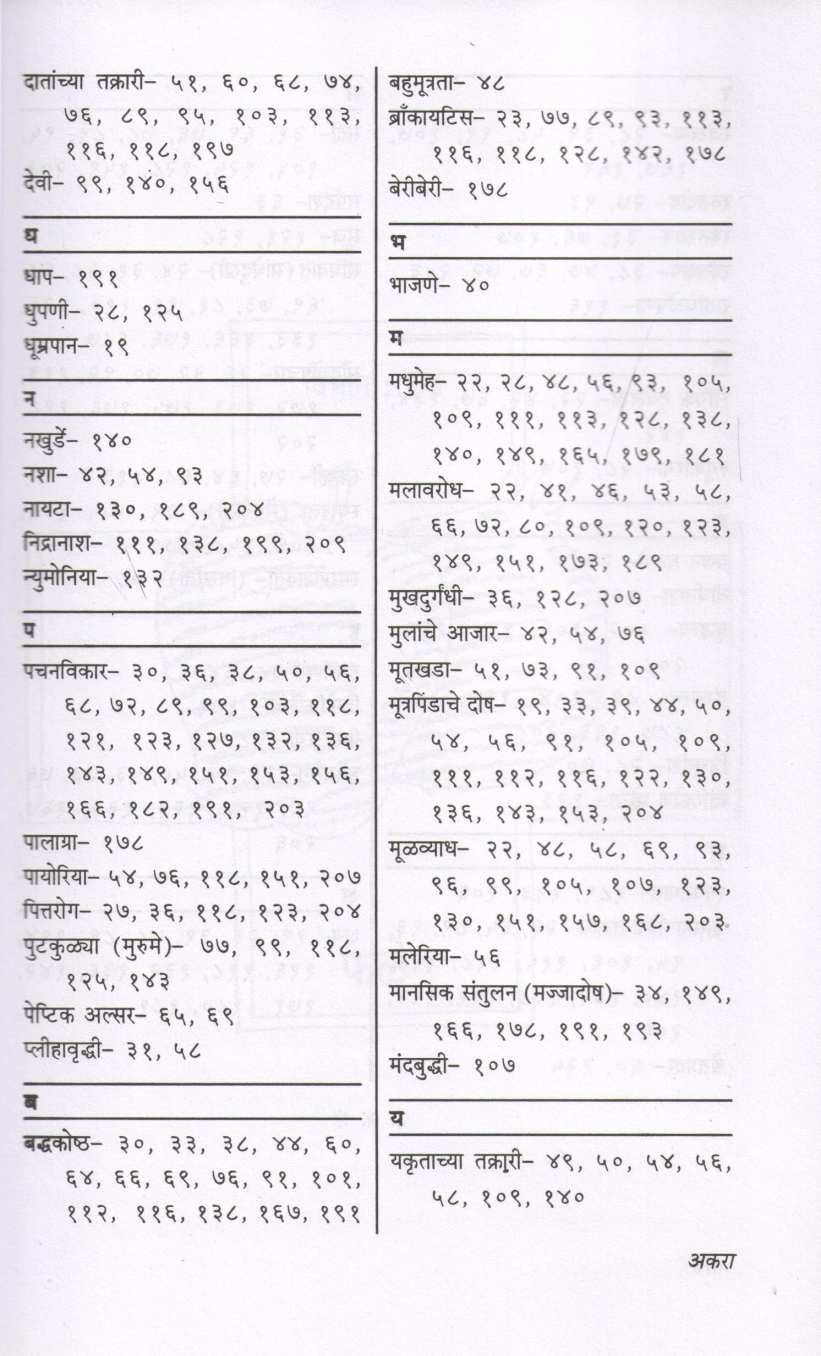 दातांच्या तक्रारी– ५१, ६०, ६८, ७४,
७६, ८९, ९५, १०३, ११३,
११६, ११८, १९७
देवी– ९९, १४०, १५६
ध
धाप– १९१
धुपणी– २८, १२५
धूम्रपान– १९
न
नखुर्डे– १४०
नशा– ४२, ५४, ९३
नायटा– १३०, १८९, २०४
निद्रानाश– १११, १३८, १९९, २०९
न्युमोनिया– १३२
प
पचनविकार– ३०, ३६, ३८, ५०, ५६,
६८, ७२, ८९, ९९, १०३, ११८,
१२१, १२३, १२७, १३२, १३६,
१४३,१४९, १५१, १५३, १५६,
१६६, १८२, १९१, २०३
पालाग्रा– १७८
पायोरिया– ५४, ७६, ११८, १५१, २०७
पित्तरोग– २७, ३६, ११८, १२३, २०४
पुटकुळ्या (मुरुमे)– ७७, ९९, ११८,
१२५, १४३
पेप्टिक अल्सर– ६५, ६९
प्लीहावृद्धी– ३१, ५८
ब
बद्धकोष्ठ– ३०, ३३, ३८, ४४, ६०,
६४, ६६, ६९, ७६, ९१, १०१,
११२, ११६, १३८, १६७, १९१
बहुमूत्रता– ४८
ब्राँकायटिस– २३, ७७, ८९, ९३, ११३,
११६, ११८, १२८, १४२, १७८
बेरीबेरी– १७८
भ
भाजणे– ४०
म
मधुमेह– २२, २८, ४८, ५६, ९३, १०५,
१०९, १११, ११३, १२८, १३८,
१४०, १४९, १६५, १७९, १८१
मलावरोध– २२, ४१, ४६, ५३, ५८,
६६, ७२, ८०, १०९, १२०, १२३,
१४९, १५१, १७३, १८९
मुखदुर्गंधी– ३६, १२८, २०७
मुलांचे आजार– ४२, ५४, ७६
मूतखडा– ५१, ७३, ९१, १०९
मूत्रपिंडाचे दोष– १९, ३३, ३९, ४४, ५०,
५४, ५६, ९१, १०५, १०९,
१११, ११२, ११६, १२२, १३०,
१३६, १४३, १५३, २०४
मूळव्याध– २२, ४८, ५८, ६९, ९३,
९६, ९९, १०५, १०७, १२३,
१३०, १५१, १५७, १६८, २०३
मलेरिया– ५६
मानसिक संतुलन (मज्जादोष)– ३४, १४९,
१६६, १७८, १९१, १९३
मंदबुद्धी– १०७
य
यकृताच्या तक्रारी– ४९, ५०, ५४, ५६,
५८, १०९, १४०
अकरा